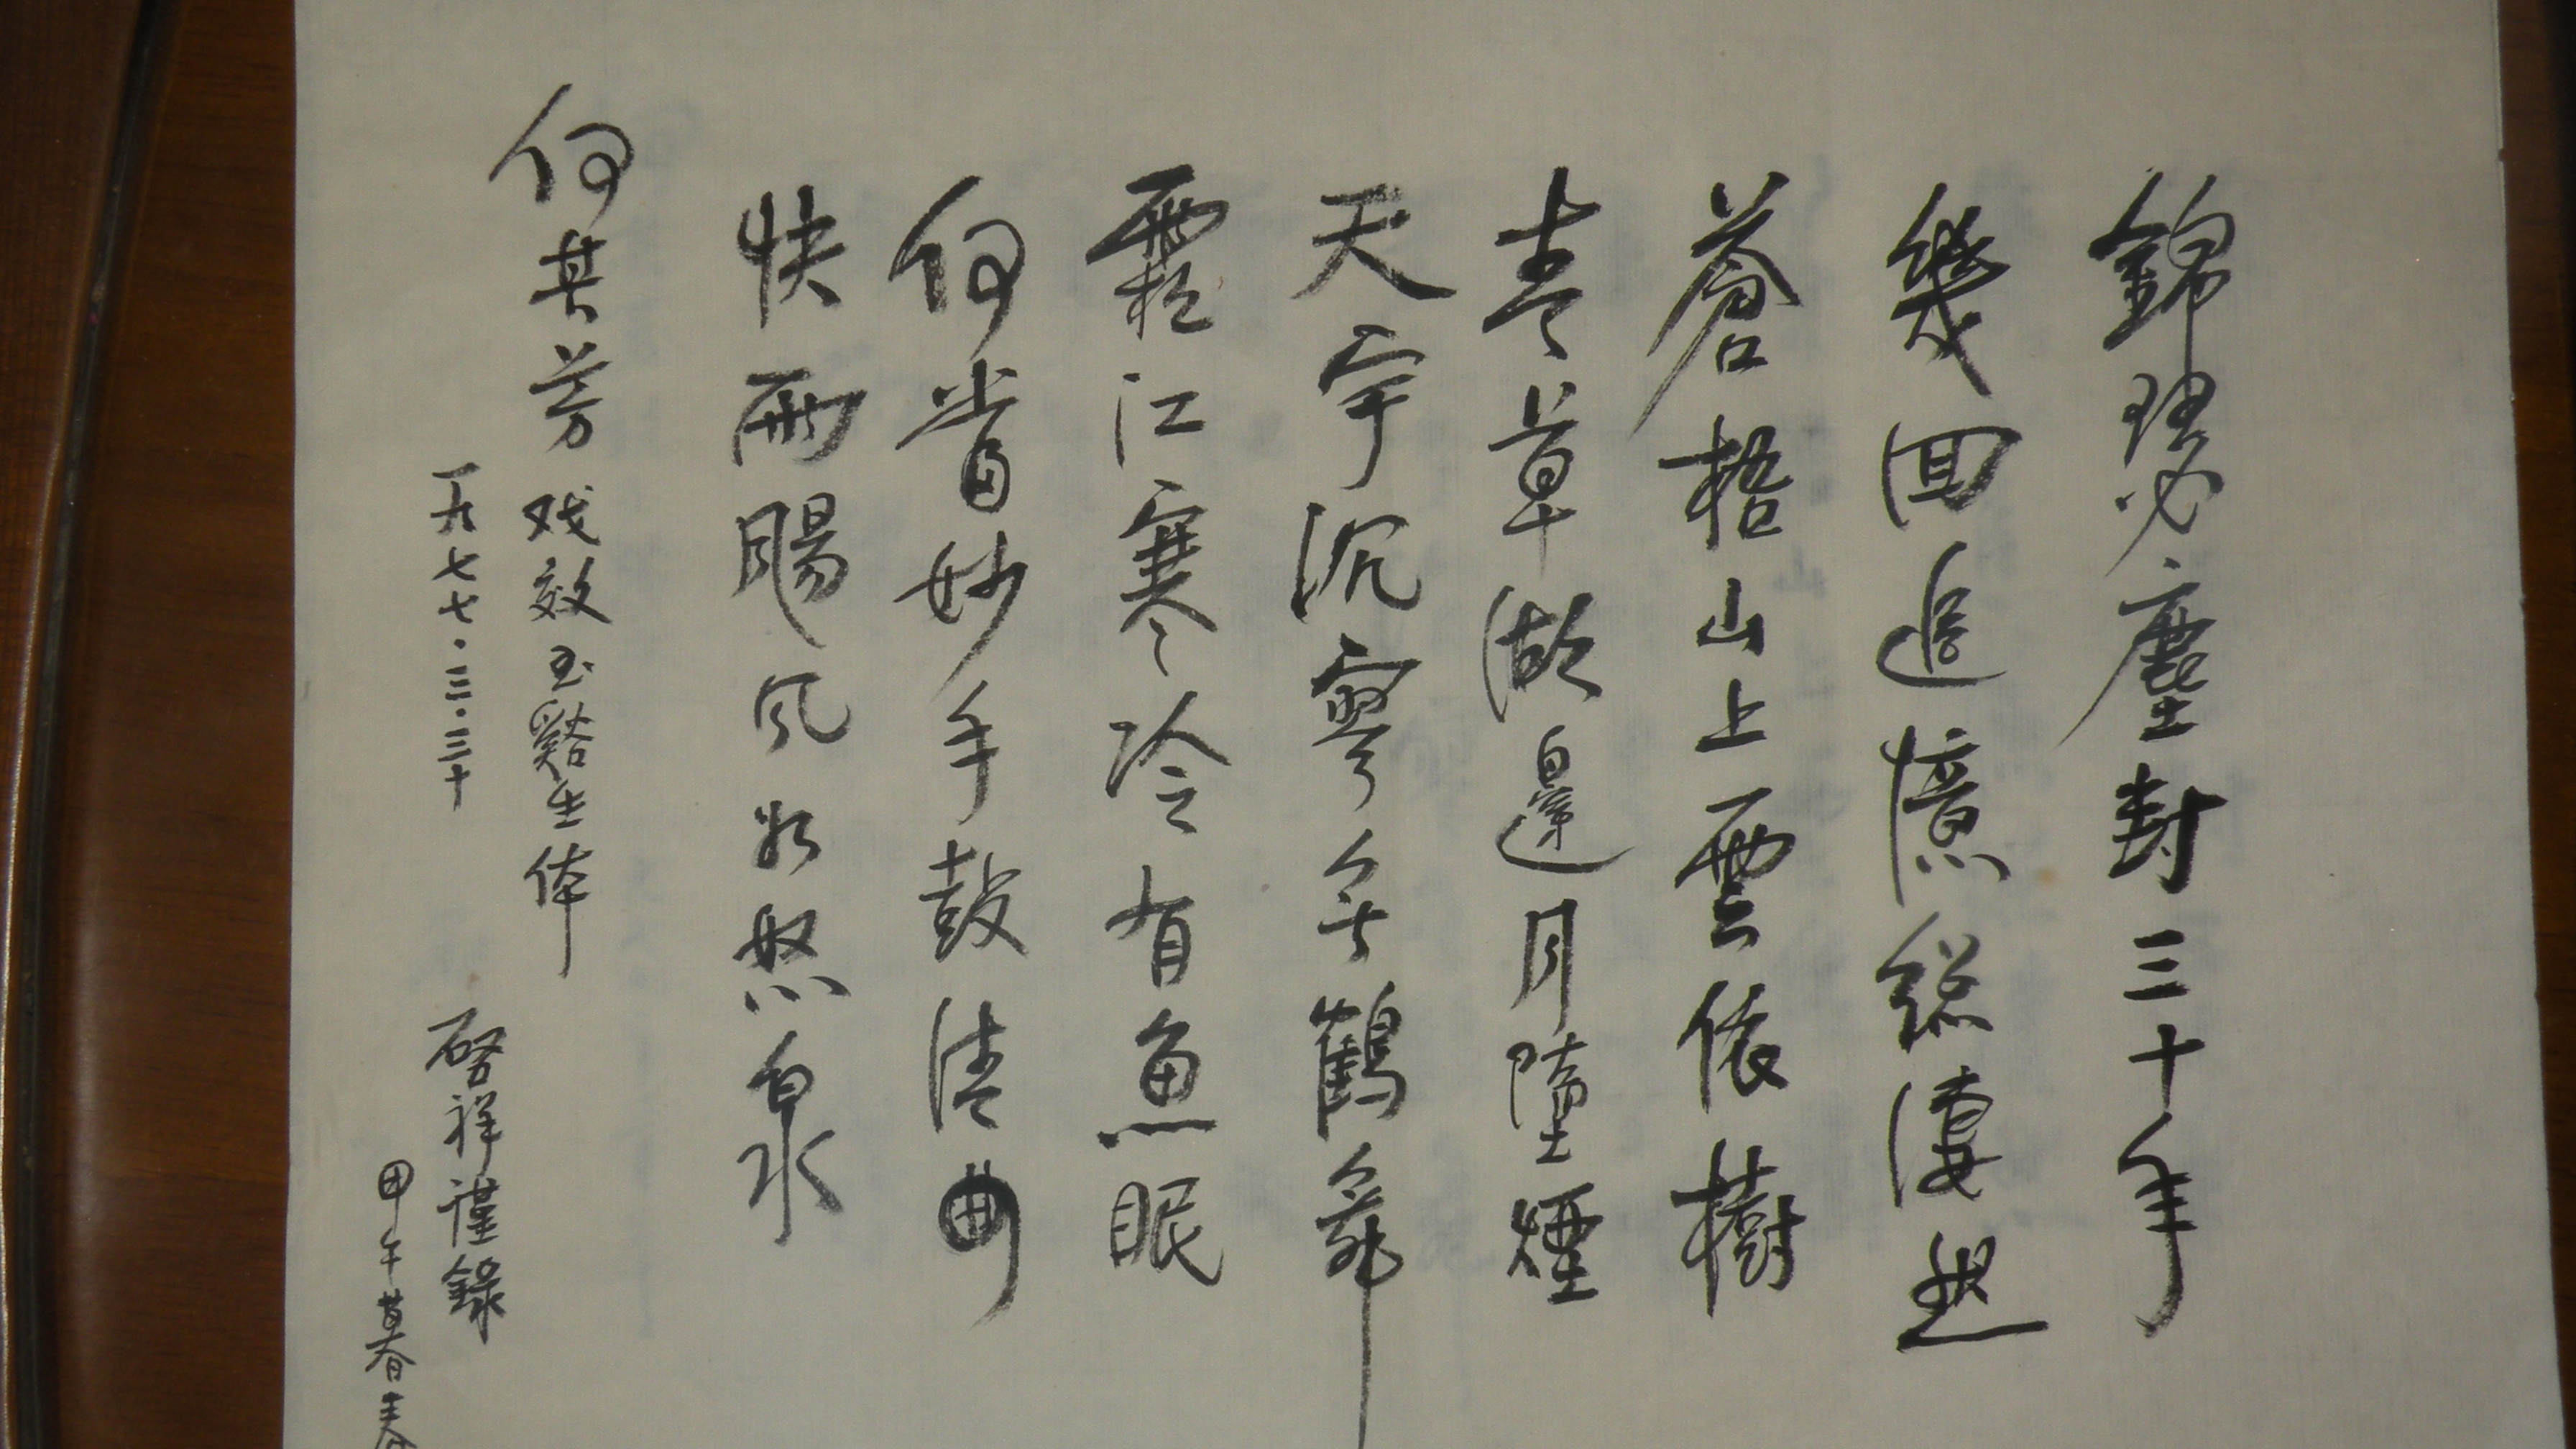 錦瑟塵封三十年
幾回追憶總淒然
蒼梧山上雲依樹
青草湖邊月墮煙
天宇沉寥無鶴舞
霜江寒冷有魚眠
何當妙手鼓清曲
快雨飈风如怒泉
何其芳戏效玉谿生体
一九七七·三·三十
启祥謹錄
甲午暮春